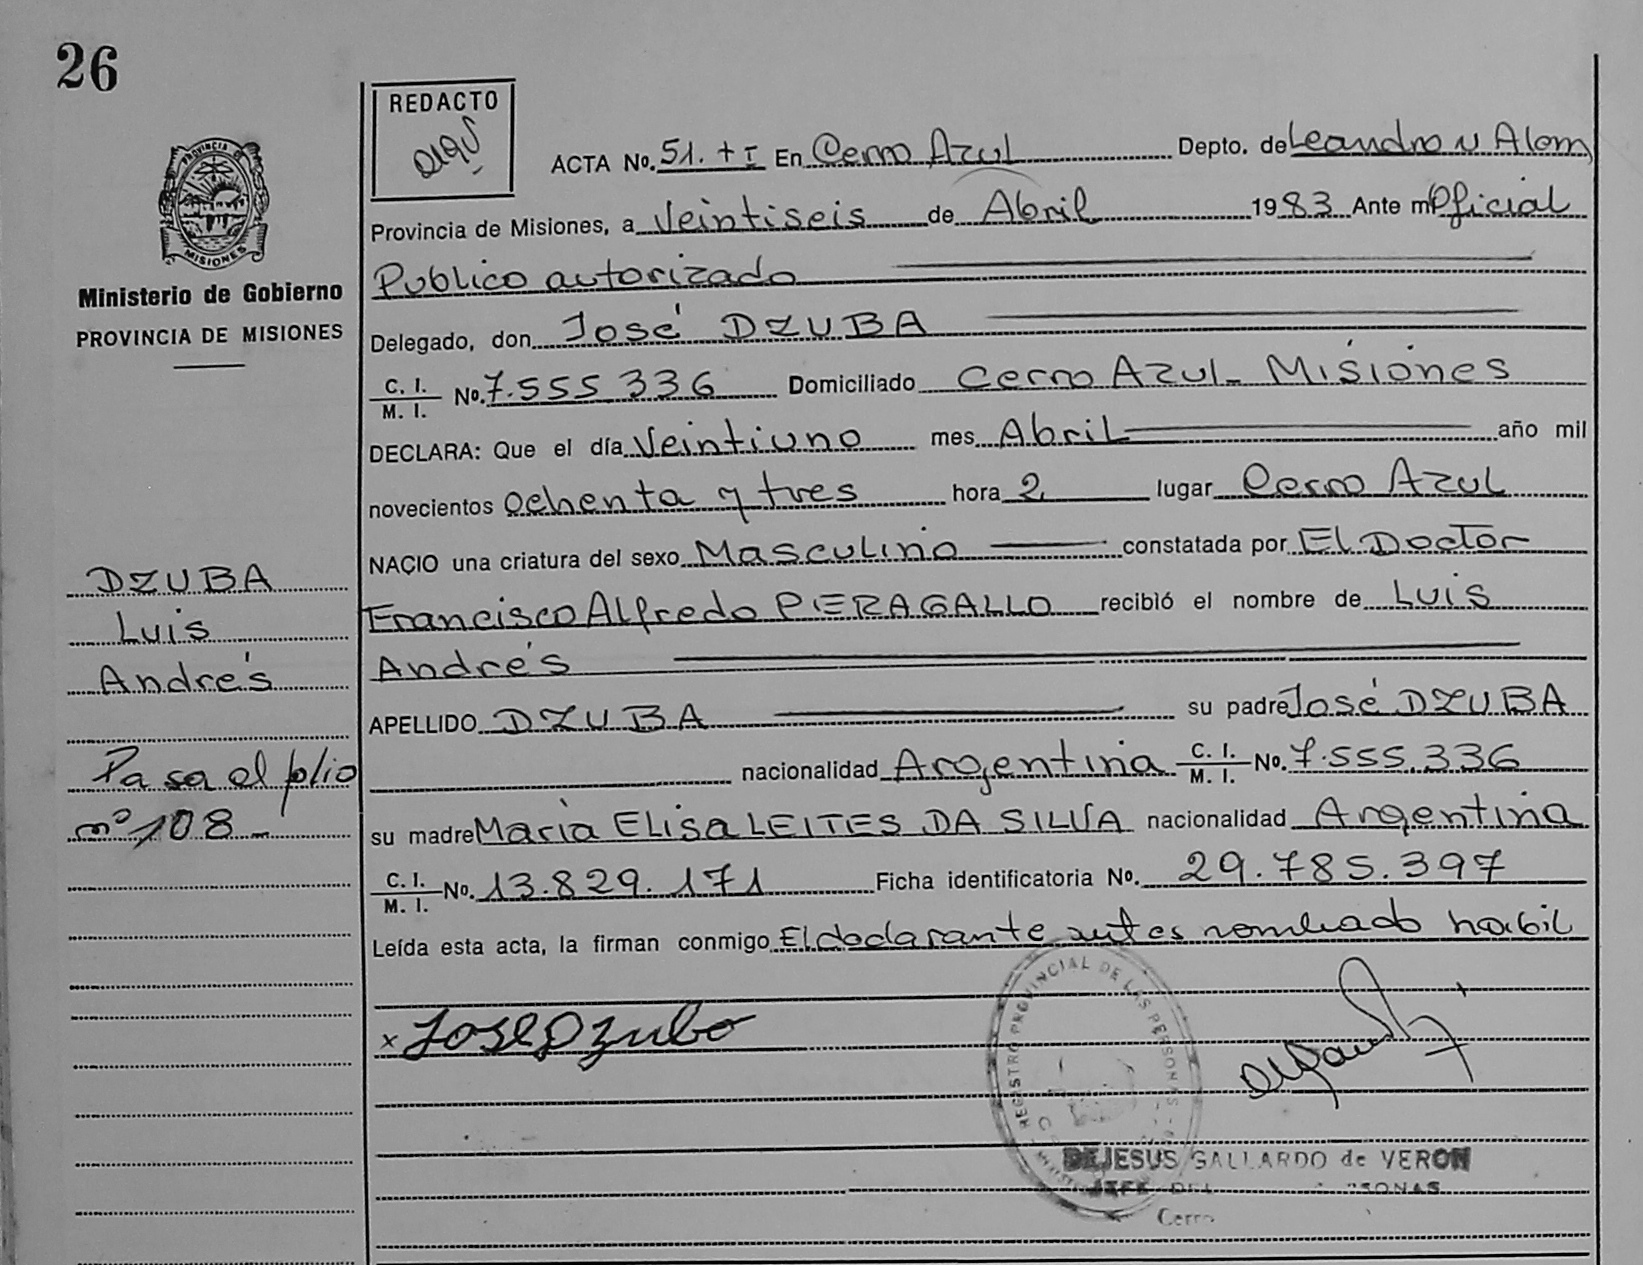 26
REDACTO
ACTA No. 51. T I En Cerro Azul Depto. de Leandro N Alem
Provincia de Misiones, a Veintiseis de Abril 1983 Ante mi Oficial
Publico autorizado
PROVINCIA DE
MISIONES
Ministerio de Gobierno
PROVINCIA DE MISIONES
Delegado, don José DZUBA
C. I. / M. I. No. 7.555.336 Domiciliado Cerro Azul - Misiones
DECLARA: Que el día Veintiuno mes Abril año mil
novecientos ochenta y tres hora 2 lugar Cerro Azul
NACIO una criatura del sexo Masculino constatada por El Doctor
Francisco Alfredo PIERAGALLO recibió el nombre de Luis
Andrés
APELLIDO DZUBA su padre José DZUBA
nacionalidad Argentina C. I. / M. I. No. 7.555.336
su madre Maria Elisa LEITES DA SILVA nacionalidad Argentina
C. I. / M. I. No. 13.829.171 Ficha identificatoria No. 29.785.397
Leída esta acta, la firman conmigo El declarante antes nombrado habil
DZUBA
Luis
Andrés
Pasa al folio
nº 108 -
x Jose Dzuba
REGISTRO PROVINCIAL DE LAS PERSONAS
DEJESUS GALLARDO de VERON
JEFE DEL
Cerro